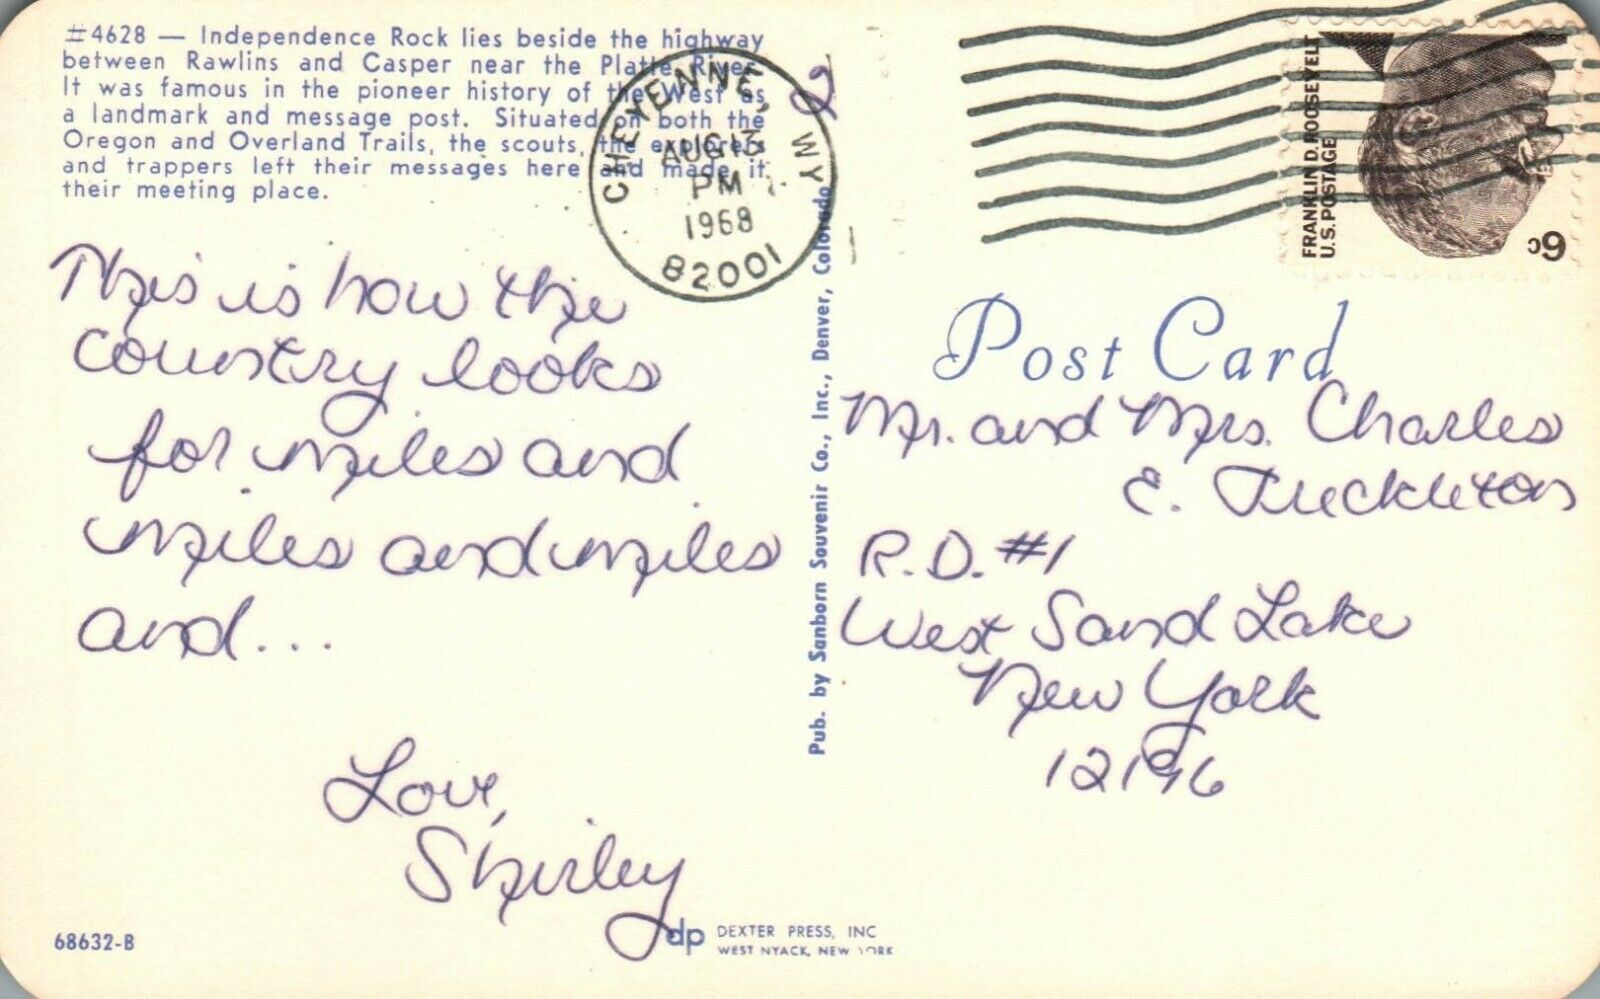 #4628 — Independence Rock lies beside the highway
between Rawlins and Casper near the Platte River.
It was famous in the pioneer history of the West as
a landmark and message post. Situated on both the
Oregon and Overland Trails, the scouts, the explorers
and trappers left their messages here and made it
their meeting place.
CHEYENNE, WY
AUG 13
PM
1968
82001
FRANKLIN D. ROOSEVELT
U.S. POSTAGE
6c
This is how the
country looks
for miles and
miles and miles
and...
Love,
Shirley
Pub. by Sanborn Souvenir Co., Inc., Denver, Colorado
Post Card
Mr. and Mrs. Charles
E.
R.D. #1
West Sand Lake
New York
12196
68632-B
dp DEXTER PRESS, INC
WEST NYACK, NEW YORK